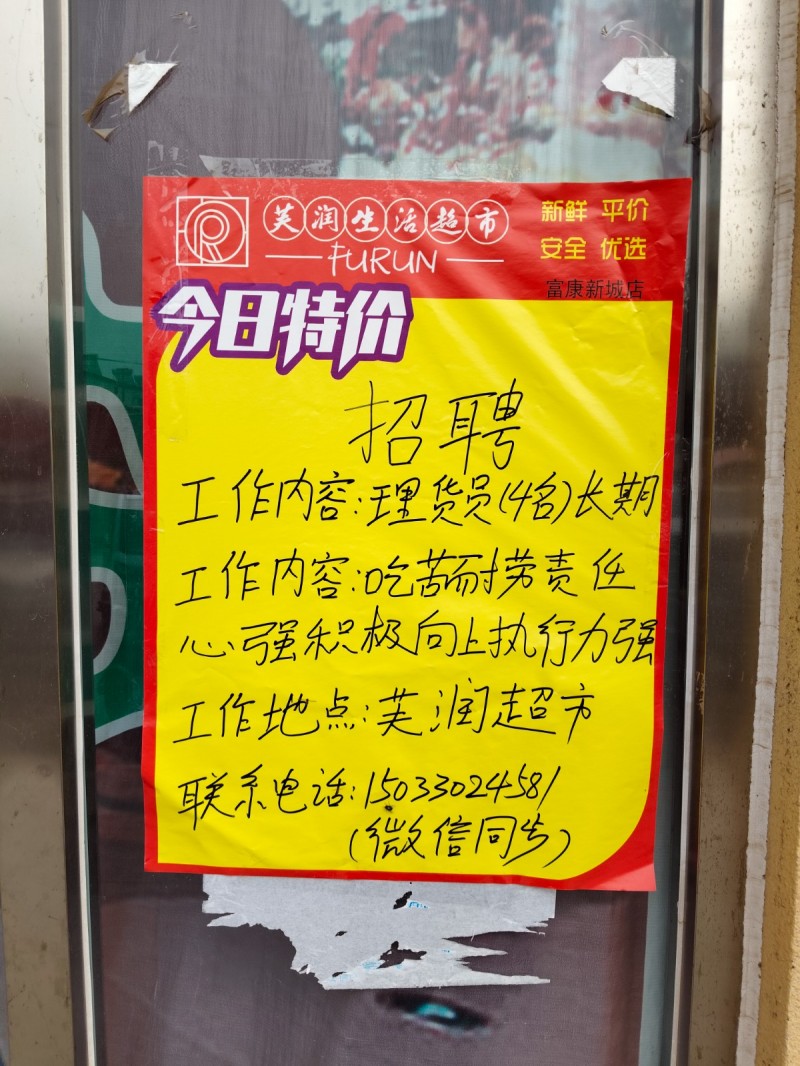 芙润生活超市
FURUN
新鲜 平价
安全 优选
富康新城店
今日特价
招聘
工作内容:理货员(4名)长期
工作内容:吃苦耐捞责任
心强积极向上执行力强
工作地点:芙润超市
联系电话:15033024581
(微信同步)